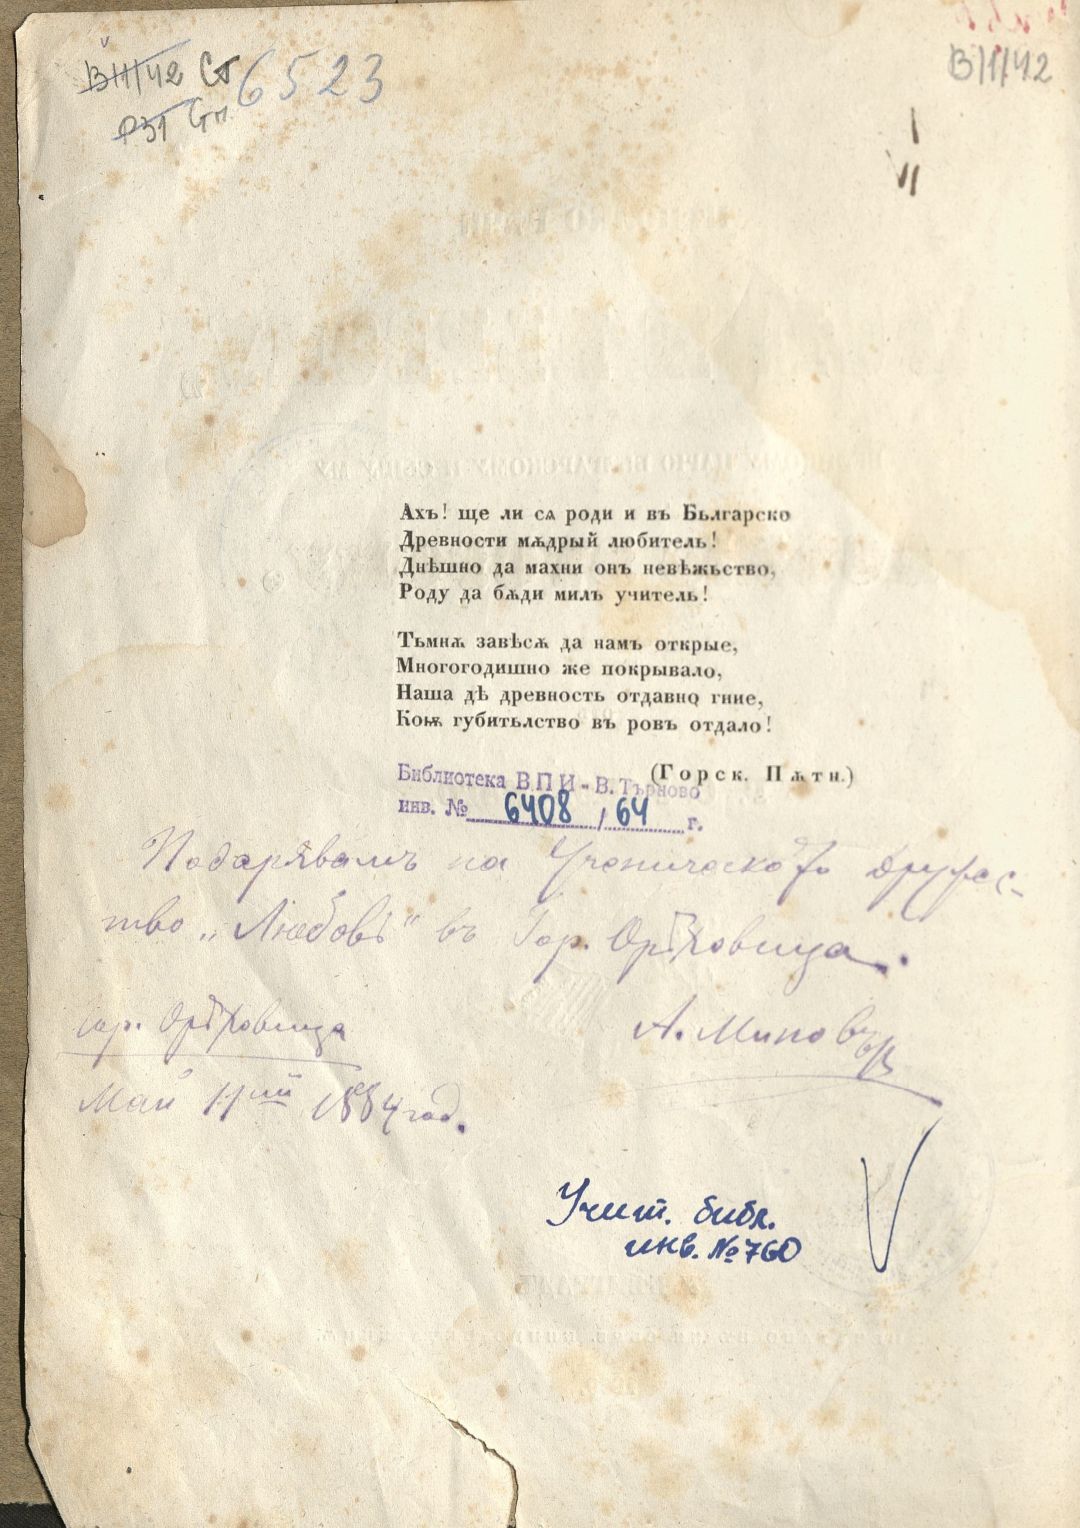 В/1/42 Ст
6523
Р31 Сп
В/1/42
I
VI
Ахъ! ще ли сѧ роди и въ Бьлгарско
Древности мѫдрый любитель!
Днѣшно да махни онъ невѣжьство,
Роду да бѫди милъ учитель!
Тьмнѫ завѣсѫ да намъ открые,
Многогодишно же покрывало,
Наша дѣ древность отдавно гние,
Коѭ губитьлство въ ровъ отдало!
(Горск. Пѫтн.)
Библиотека ВПИ - В. Търново
инв. № 6408 / 64 г.
Подарявамъ на Ученическото дружес-
тво „Любовь" въ Гор. Орѣховица.
гор. Орѣховица
А. Миновъ
Май 11ий 1884 год.
Учит. библ.
инв. № 760